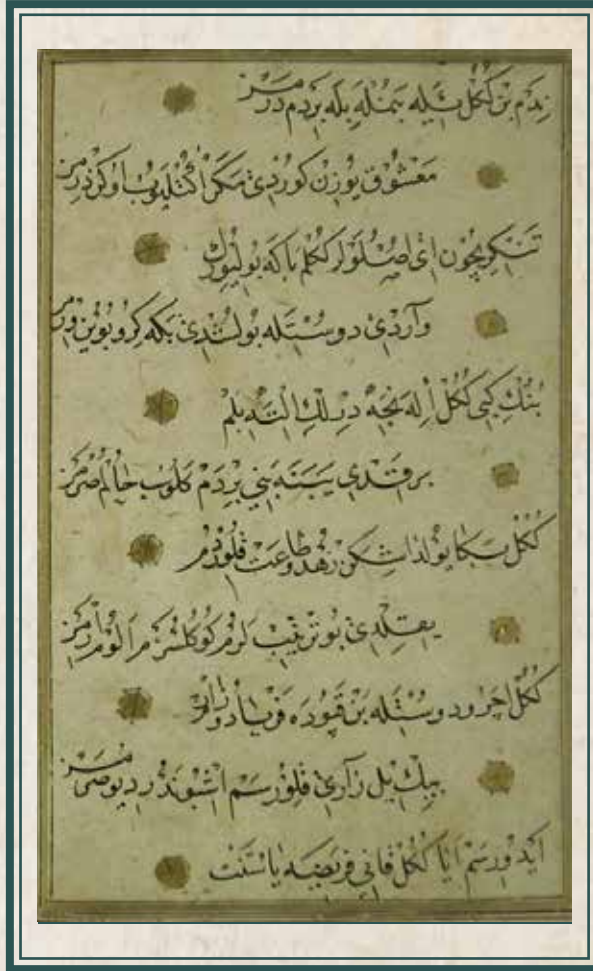 ندم بن ككل بيله بنمله بله بردم درمز
معشوق يوزن كوردى مكر اكتليوب اوكن درمز
تنكريچون اى اصلولر ككلم باكه بوليورك
واردى دوستله بولشدى بكه كرو بوين ورمز
بنك كبى ككل اله نجه درلك ايده بلم
برقدى يبنه بنى بردم كلوب حالم صرمز
ككل بكا يولداشكن زهد وطاعت قلوردم
يقلدى بو ترتيب لرم كوكلسزم الوم ارمز
ككل اچرو دوستله بن قپوده فرياد وزار
بيك ييل زارى قلورسم اشبو ندر ديو صرمز
ايدورسم انا ككل قانى فريضه يا سنت